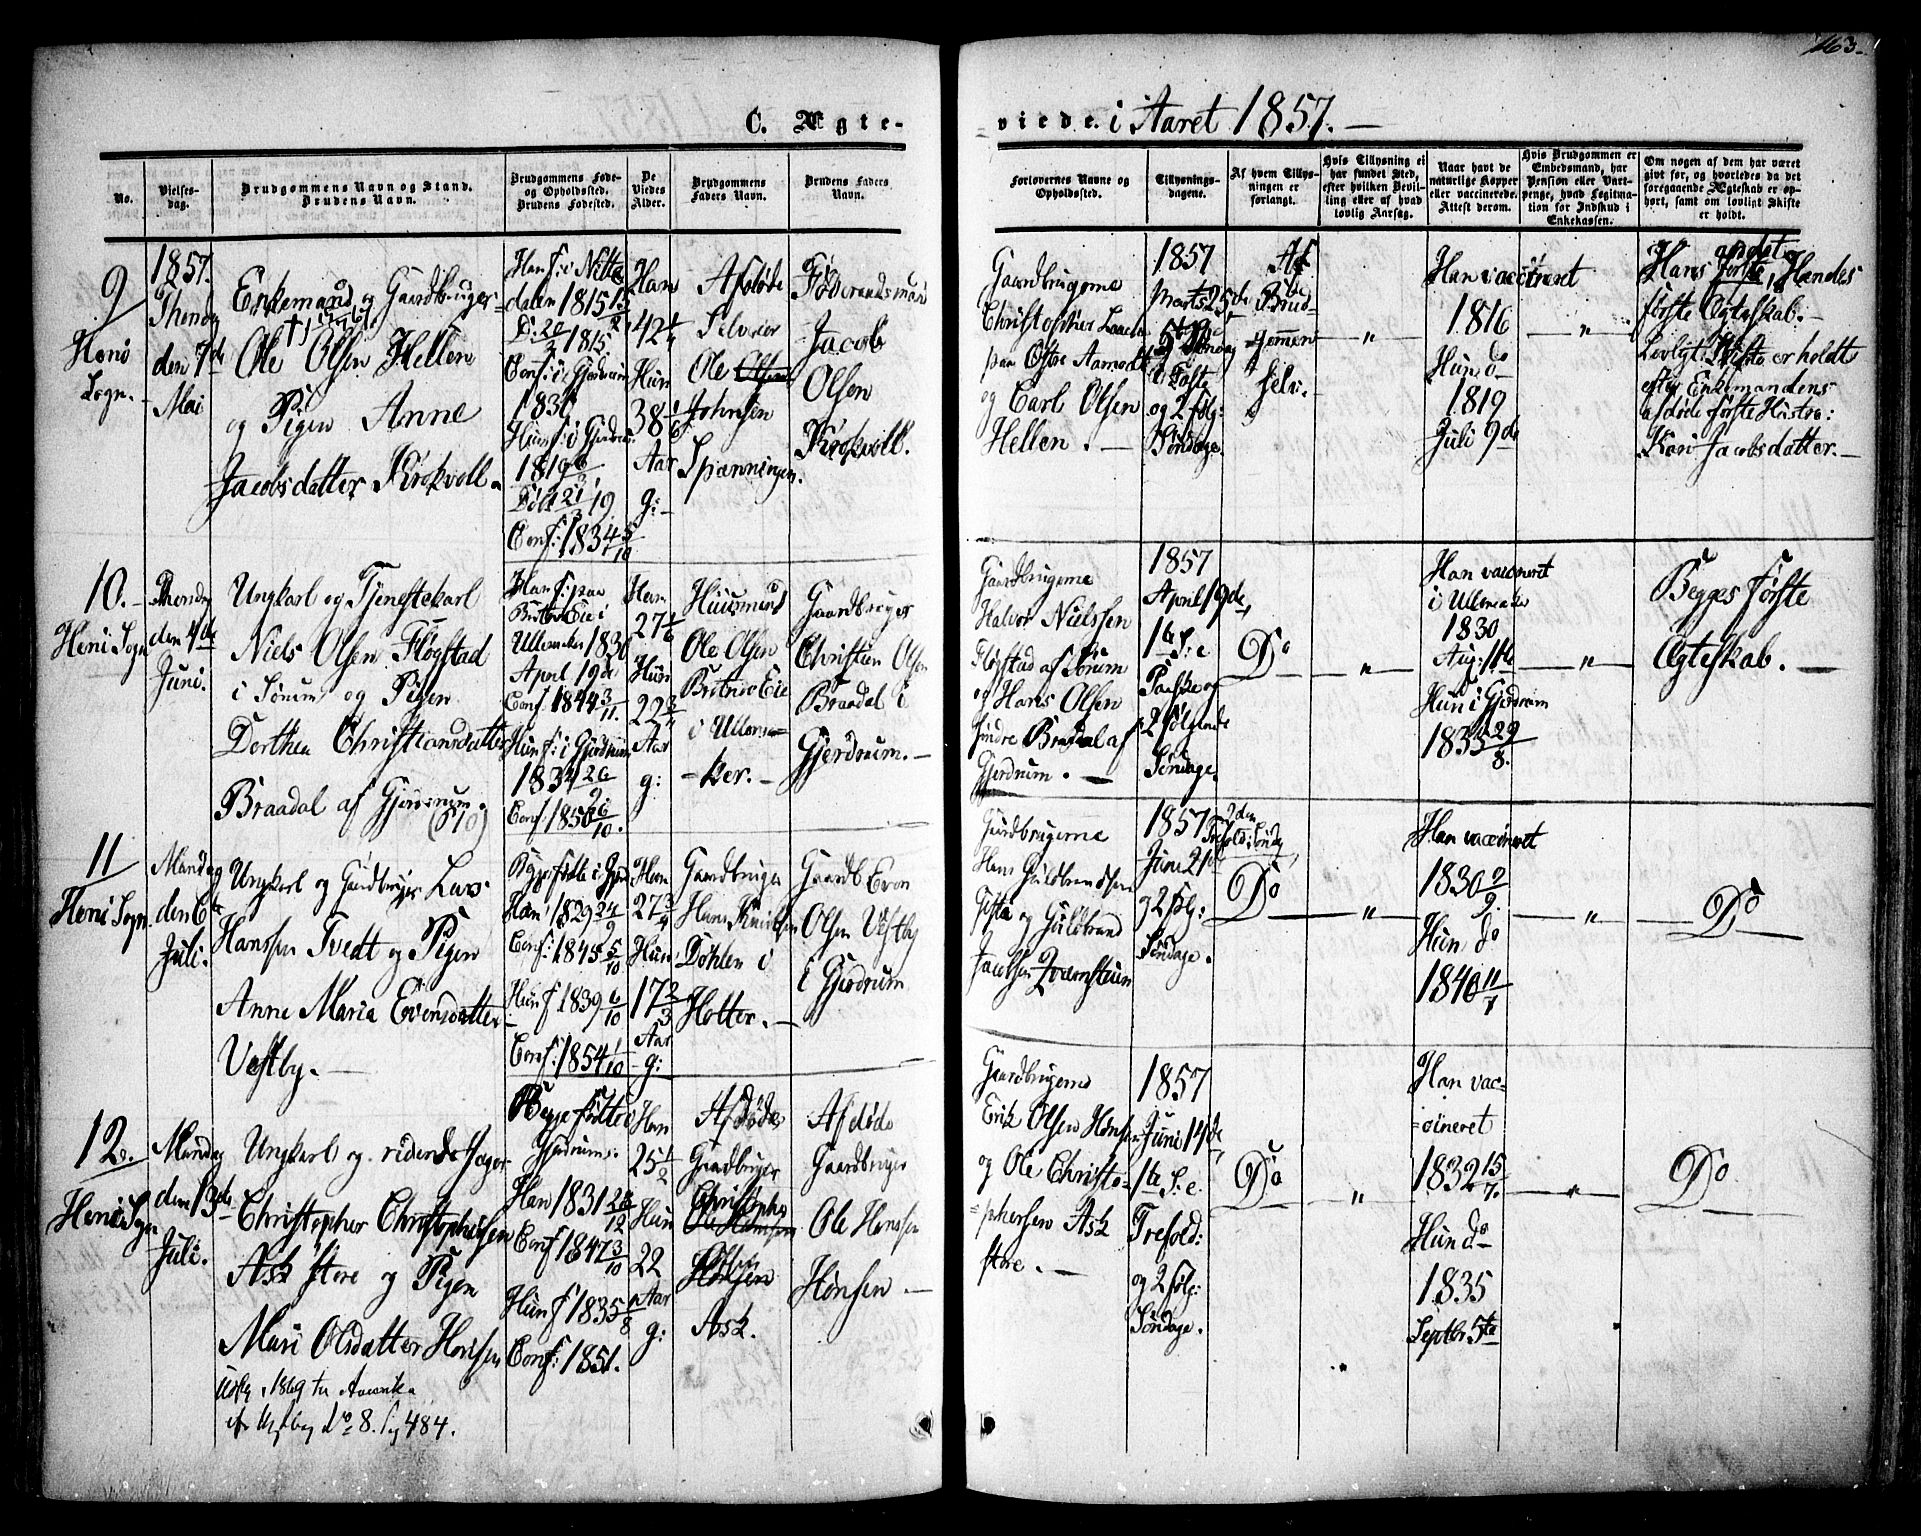 163.
C. Ægte-
viede. i Aaret 1857. —
No.
Vielses-
dag.
Brudgommens Navn og Stand.
Brudens Navn.
Brudgommens Føde-
og Opholdssted.
Brudens Fødested.
De
Viedes
Alder.
Brudgommens
Faders Navn.
Brudens Faders
Navn.
Forlovernes Navne og
Opholdssted.
Tillysnings-
dagene.
Af hvem Tillys-
ningen er
forlangt.
Hvis Tillysning ei
har fundet Sted,
efter hvilken Bevil-
ling eller af hvad
lovlig Aarsag.
Naar havt de
naturlige Kopper
eller vaccinerede.
Attest derom.
Hvis Brudgommen er
Embedsmand, har
Pension eller Vart-
penge, hvad Legitima-
tion for Indskud i
Enkekassen.
Om nogen af dem har været
givt før, og hvorledes da det
foregaaende Ægteskab er op-
hørt, samt om lovligt Skifte
er holdt.
9
Heni
Sogn.
1857.
den 7de
Mai
Enkemand og Gaardbruger
Ole Olsen Hellen
og Pigen Anne
Jacobsdatter Krokvoll.
Han f: i Nitte
dalen 1815
1815
Conf: i Gjerdrum
1830
Hun f: i Gjerdrum
1819
Conf: 1834 5/10
Han
42 1/4
Hun
38 1/6
Aar
g:
Afdøde
Selveier
Ole Olsen
Johnsen
Spænningen.
Føderaadsmand
Jacob
Olsen
Krokvoll.
Gaardbrugerne
Christopher
paa Østre Aamodt
og Carl Olsen
Hellen. —
1857
Marts 25de
Faste
og 2 følg:
Søndage.
Af
Brud-
gommen
selv.
— " —
Han vaccineret
1816
Hun do
1819
Juli 9de
— " —
andet
Hans første, Hendes
første Ægteskab. —
Lovligt Skifte er holdt
efter Enkemandens
afdøde første Hustro:
Kari Jacobsdatter. —
10. —
Heni Sogn
den 4de
Juni.
Ungkarl og Tjenestekarl
Niels Olsen Fløgstad
i Sørum og Pigen
Dorthea Christiansdatter
Braadal af Gjerdrum.
(S 10)
Han f: paa
Eie i
Ullensaker 1830
April 19de
Conf. 1844 3/11.
Hun f: i Gjerdrum
1834 26/9
Conf: 1850 6/10.
Han
27 1/6
Hun
22 3/4
Aar
g:
Huusmand
Ole Olsen
Eie
i Ullensa-
-ker. —
Gaardbruger
Christian Olsen
Braadal i
Gjerdrum. —
Gaardbrugerne
Halvor Nielssen
Fløgstad af Sørum
og Hans Olsen
Braadal af
Gjerdrum. —
1857
April 19de,
1te S: e
Paaske og
2 følgende
Søndage.
Do
— " —
Han vaccineret
i Ullensaker
1830
Aug: 11te
Hun i Gjerdrum
1835 29/8.
— " —
Begges første
Ægteskab. —
11
Heni Sogn.
Mandag
den 6te
Juli.
Ungkarl og Gaardbruger Lars
Hanssen Tvedt og Pigen
Anne Maria Evensdatter
Vestby. —
Begge fødte i Gjerd
Han 1829 24/9
Conf: 1845 5/10
Hun f 1839 6/10
Conf: 1854 1/10
Han
27 3/4
Hun
17 2/3
Aar
g:
Gaardbruger
Hans
Døhlen i
Holter. —
Gaardb Even
Olsen Vestby
i Gjerdrum
Gaardbrugerne
Hans Guldbrandsen
og Guldbrand
Jacobsen
1857
Juni 21de
og 2 følg:
Søndage.
2den
Trefold: Søndag,
Do
— " —
Han vaccineret
1830 2/9.
Hun do
1840 11/7
— " —
Do
12.
Heni Sogn
Mandag
den 13de
Juli.
Ungkarl og ridende Jæger
Christopher Christophersen
Ask store og Pigen
Mari Olsdatter Hønsen
1869 til Amerika
No 8. Pag 484.
Begge fødte i
Gjerdrum:
Han 1831 28/12
Conf 1847 3/10
Hun f 1835 /8
Conf: 1851.
Han
25 1/2
Hun
22
Aar
g:
Afdøde
Gaardbruger
Christopher
Ole Hansen
Hønsen
Ask.
Afdøde
Gaardbruger
Ole Hanssen
Hønsen —
Gaardbrugerne
Erik Olsen Hønsen
og Ole Christo-
phersen Ask
store. —
1857
Juni 14de,
1te S. e.
Trefold:
og 2 følg:
Søndage.
Do
"
Han vac-
cineret
1832 15/7.
Hun do
1835
Septbr 5te
— " —
Do